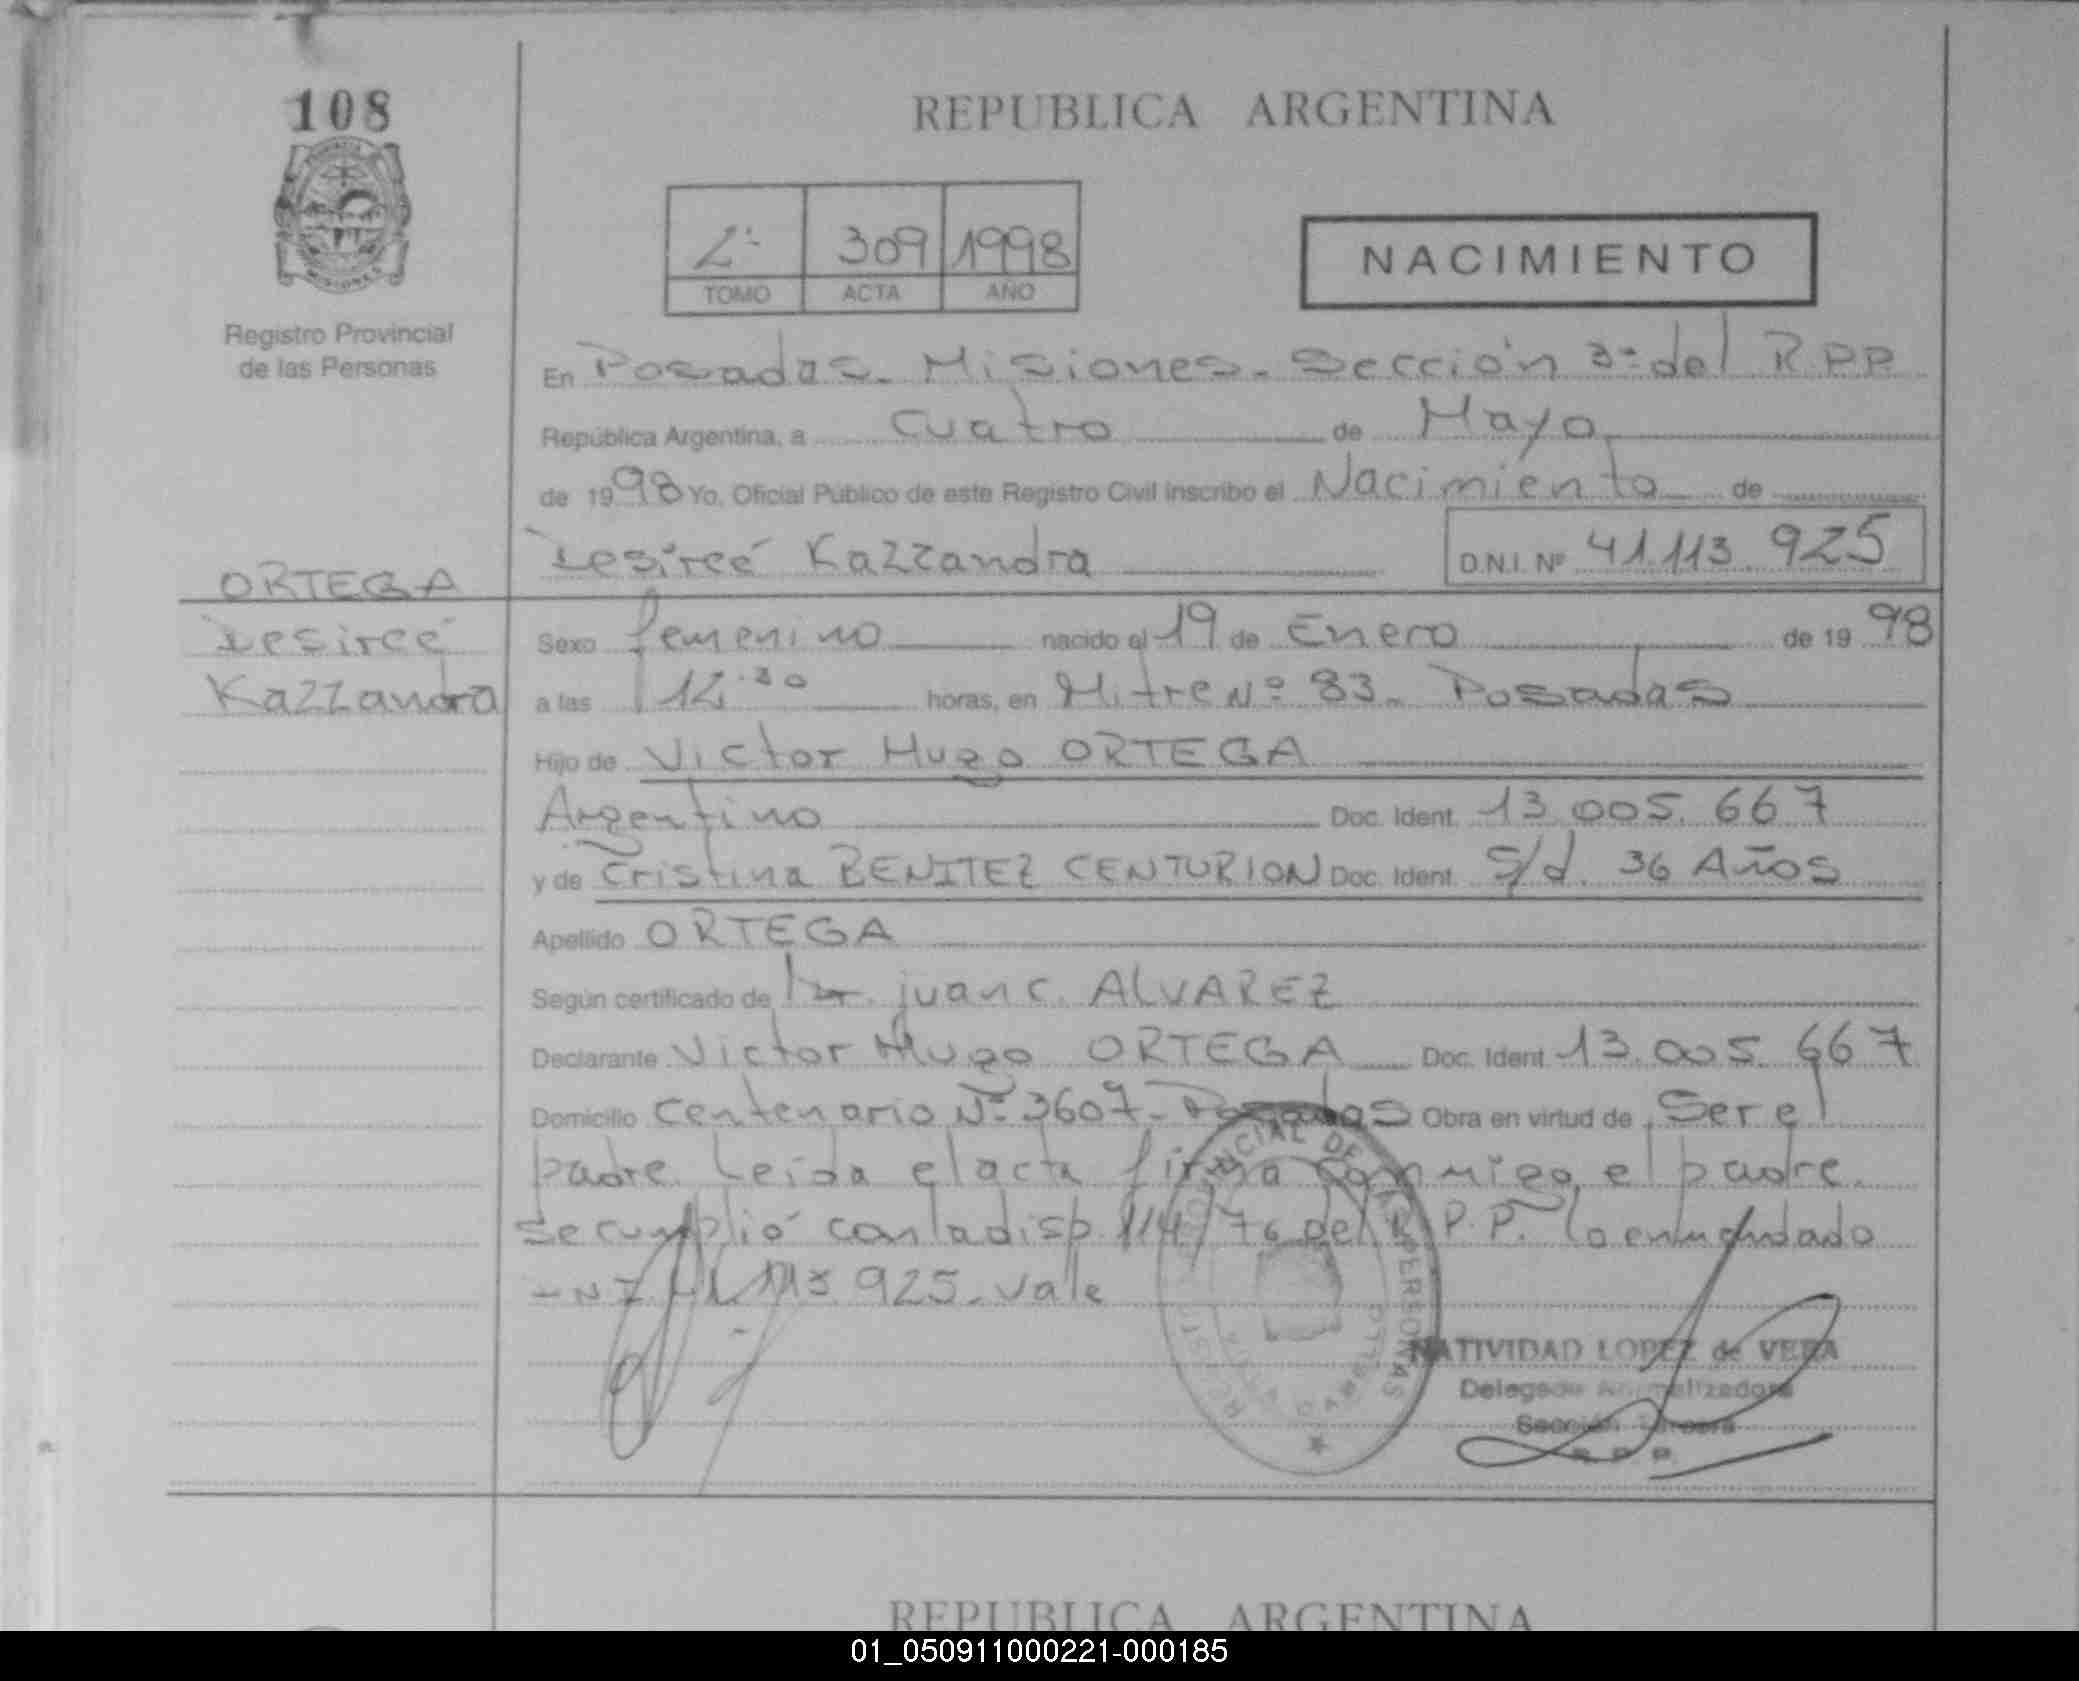 108
REPUBLICA ARGENTINA
PROVINCIA
MISIONES
Registro Provincial
de las Personas
2º 309 1998
TOMO ACTA AÑO
NACIMIENTO
En Posadas - Misiones - Sección 3º del R.P.P.
República Argentina, a cuatro de Mayo
de 1998 Yo, Oficial Público de este Registro Civil inscribo el Nacimiento de
Desireé Kazzandra D.N.I. Nº 41.113.925
ORTEGA
Desireé
Kazzandra
Sexo femenino nacido el 19 de Enero de 1998
a las 12.30 horas, en Mitre Nº 83 - Posadas
Hijo de Victor Hugo ORTEGA
Argentino Doc. Ident. 13.005.667
y de Cristina BENITEZ CENTURION Doc. Ident. S/d. 36 Años
Apellido ORTEGA
Según certificado de Dr. juan c. ALVAREZ
Declarante Victor Hugo ORTEGA Doc. Ident. 13.005.667
Domicilio Centenario Nº 3607 - Posadas Obra en virtud de Ser el
padre. Leida el acta firma conmigo el padre.
se cumplió con la disp. 114/76 del R.P.P. lo enmendado
41.113.925 - vale
NATIVIDAD LOPEZ de VERA
Delegada Normalizadora
Sección Tercera
R. P. P.
REPUBLICA ARGENTINA
01_050911000221-000185